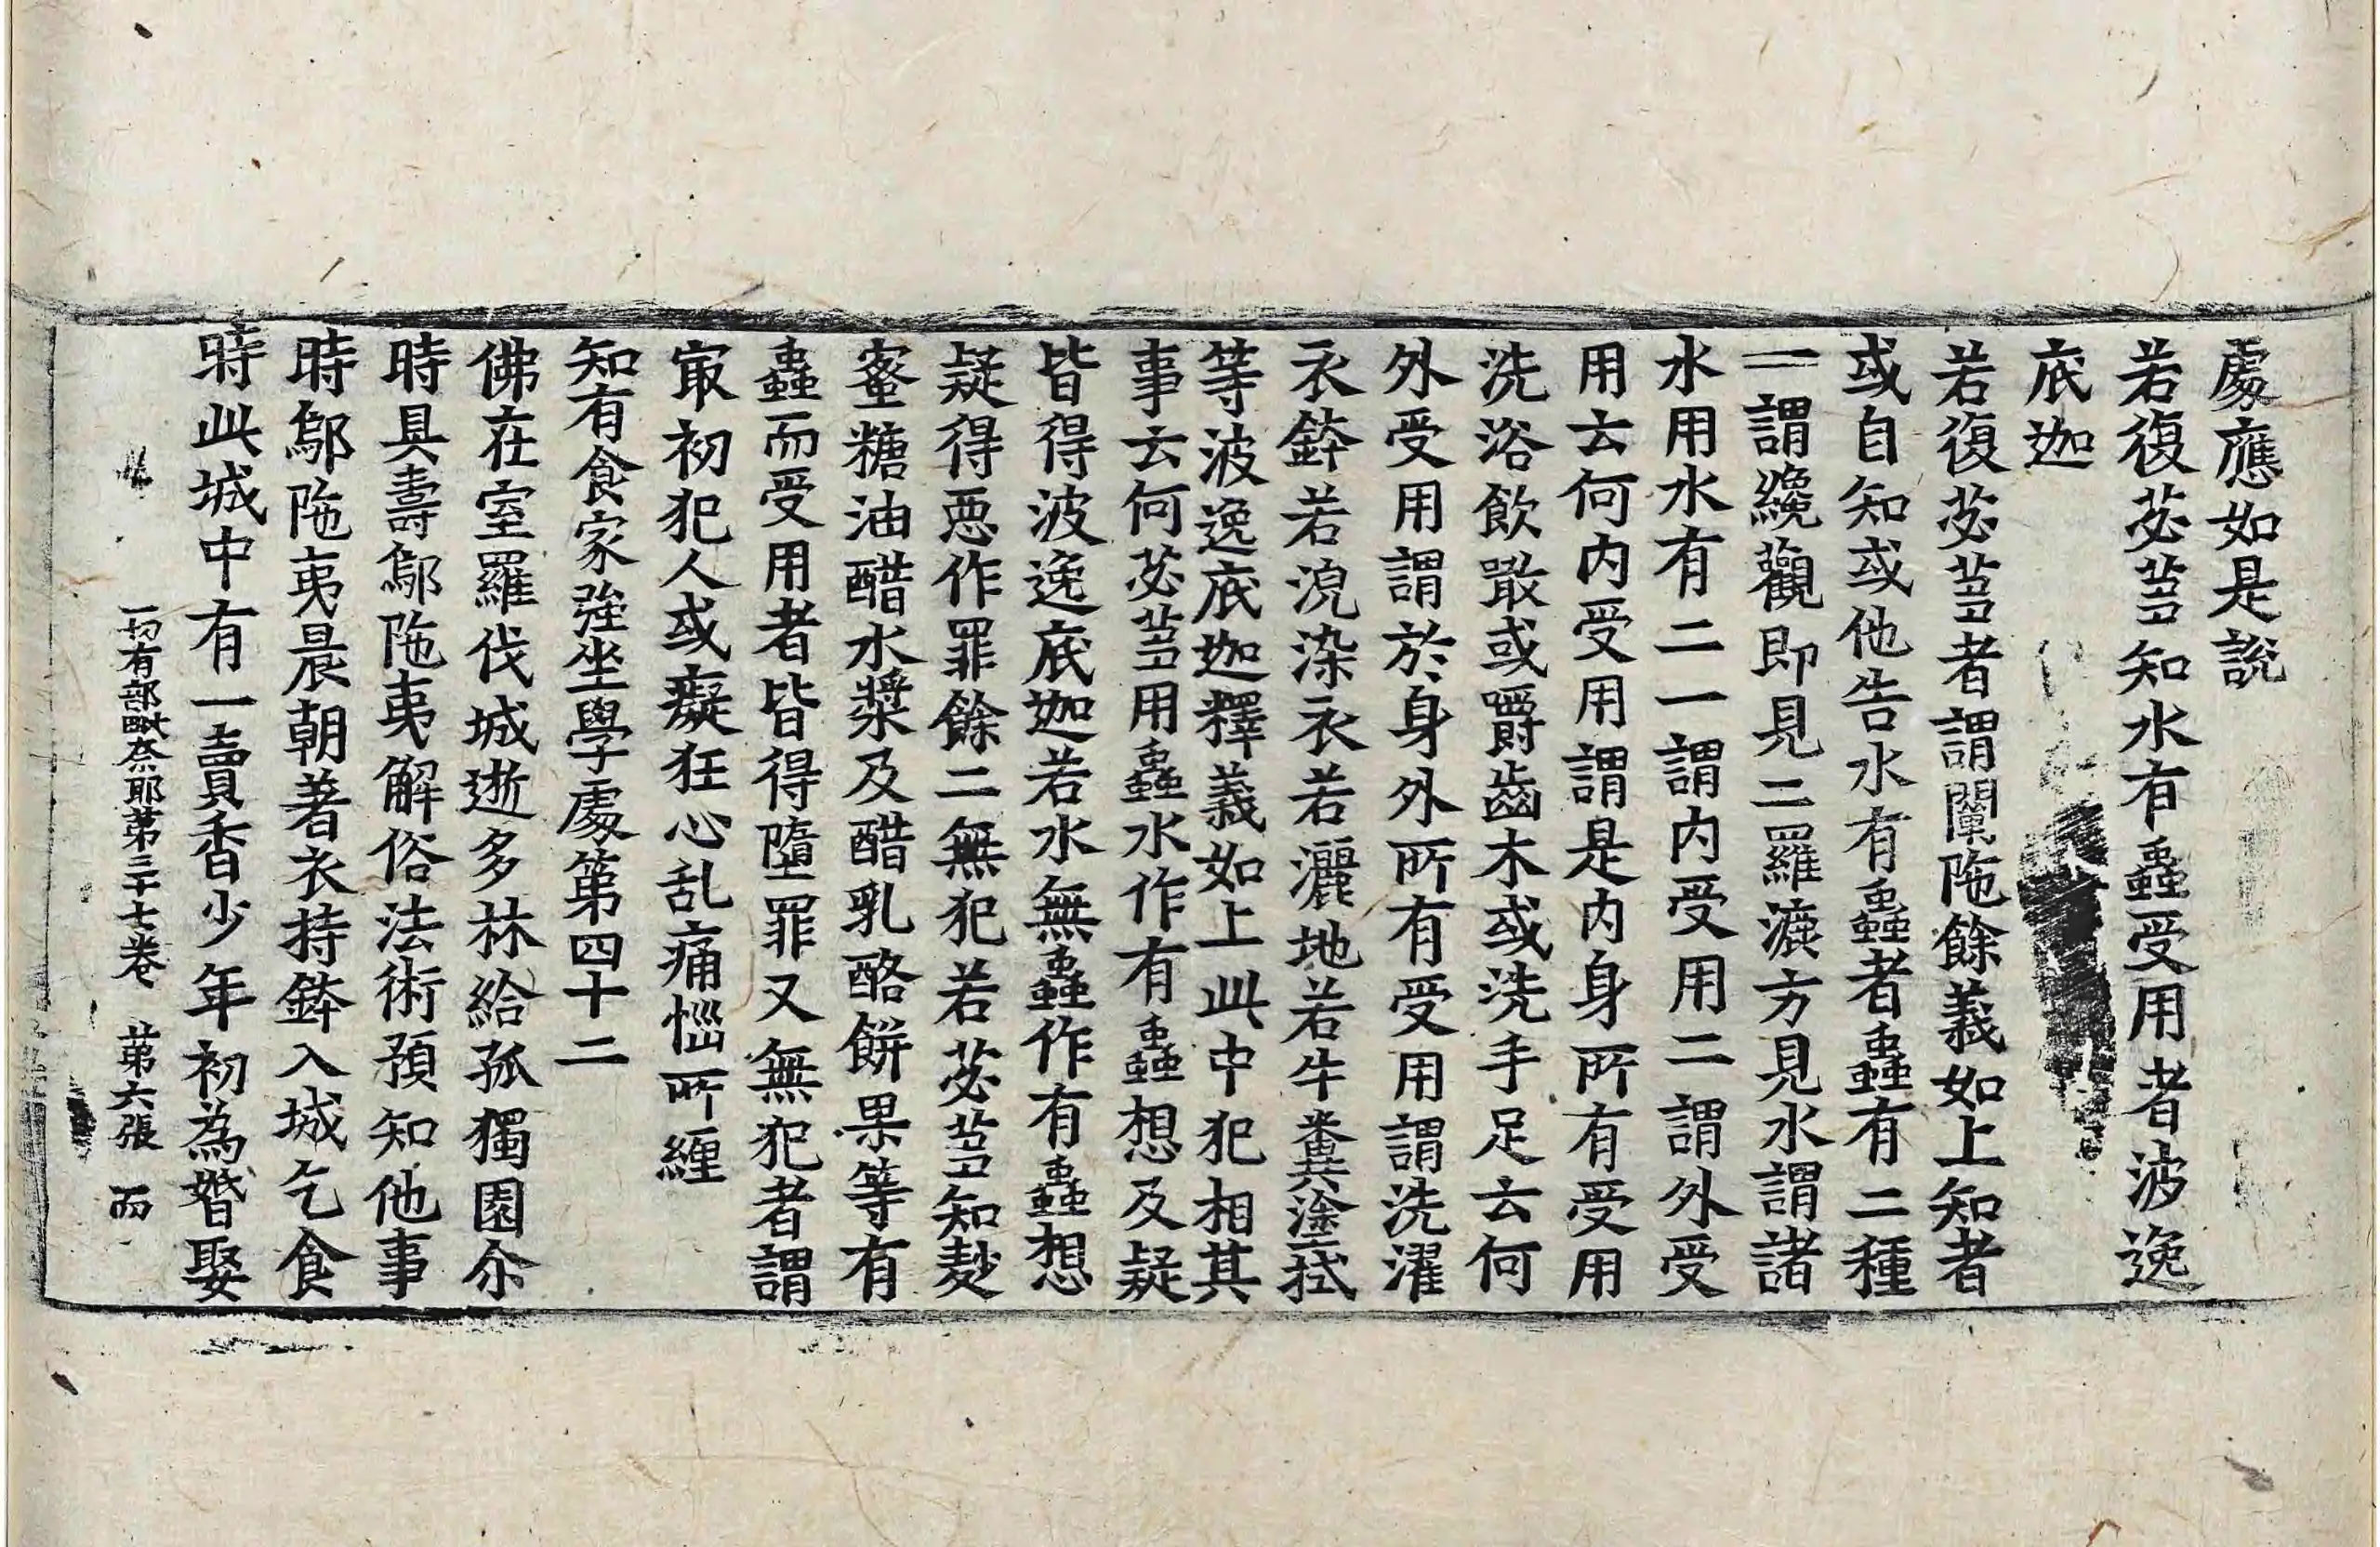 處應如是說
若復苾芻知水有蟲受用者波逸
底迦
若復苾芻者謂闡陁餘義如上知者
或自知或他告水有蟲者蟲有二種
一謂纔觀即見二羅漉方見水謂諸
水用水有二一謂內受用二謂外受
用云何內受用謂是內身所有受用
洗浴飲噉或嚼齒木或洗手足云何
外受用謂於身外所有受用謂洗濯
衣鉢若浣染衣若灑地若牛糞塗拭
等波逸底迦釋義如上此中犯相其
事云何苾芻用蟲水作有蟲想及疑
皆得波逸底迦若水無蟲作有蟲想
疑得惡作罪餘二無犯若苾芻知麨
蜜糖油醋水漿及醋乳酪餅果等有
蟲而受用者皆得墮罪又無犯者謂
冣初犯人或癡狂心乱痛惱所纏
知有食家強坐學處第四十二
佛在室羅伐城逝多林給孤獨園尒
時具壽鄔陁夷解俗法術預知他事
時鄔陁夷晨朝著衣持鉢入城乞食
時此城中有一賣香少年初為婚娶
一切有部毗奈耶第三十七卷 第六張 而